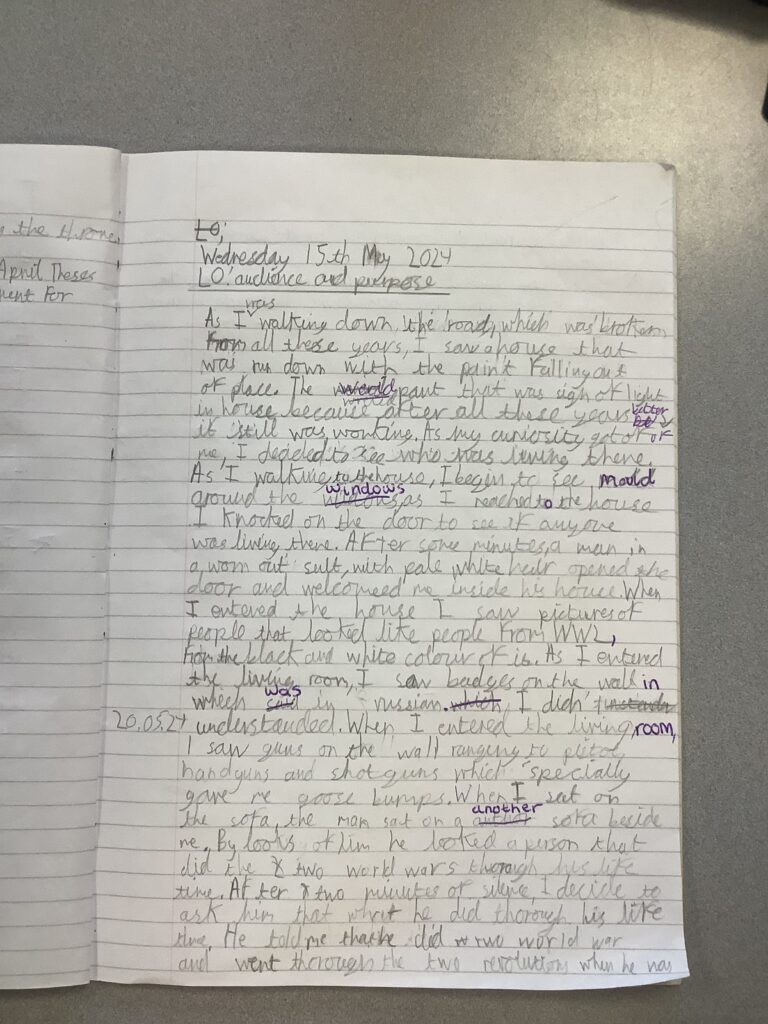 n the throne,
April Theses
ment For
LO;
Wednesday 15th May 2024
LO: audience and purpose
As I was walking down the road, which was broken
from all these years, I saw a house that
was run down with the paint falling out
of place. The paut that was sign of light
in house because after all these years
it still was working. As my curiosity got better of
me, I decided to see who was living there.
As I walking to the house, I begin to see mould
around the windows as I reached to the house
I knocked on the door to see if anyone
was living there. After some minutes, a man in
a worn out suit, with pale white heir opened the
door and welcomeed me inside his house. When
I entered the house I saw pictures of
people that looked like people from WW2,
from the black and white colour of it. As I entered
the living room, I saw badges on the wall in
which was in russian. which I didn't
20.05.24 understanded. When I entered the living room,
I saw guns on the wall ranging to pistol
handguns and shotguns which specially
gave me goose bumps. When I sat on
the sofa, the man sat on a another sofa beside
me. By looks of him he looked a person that
did the two world wars thorough his life
time. After two minutes of silence, I decide to
ask him that what he did thorough his like
time. He told me that he did two world war
and went thorough the two revolutions when he was